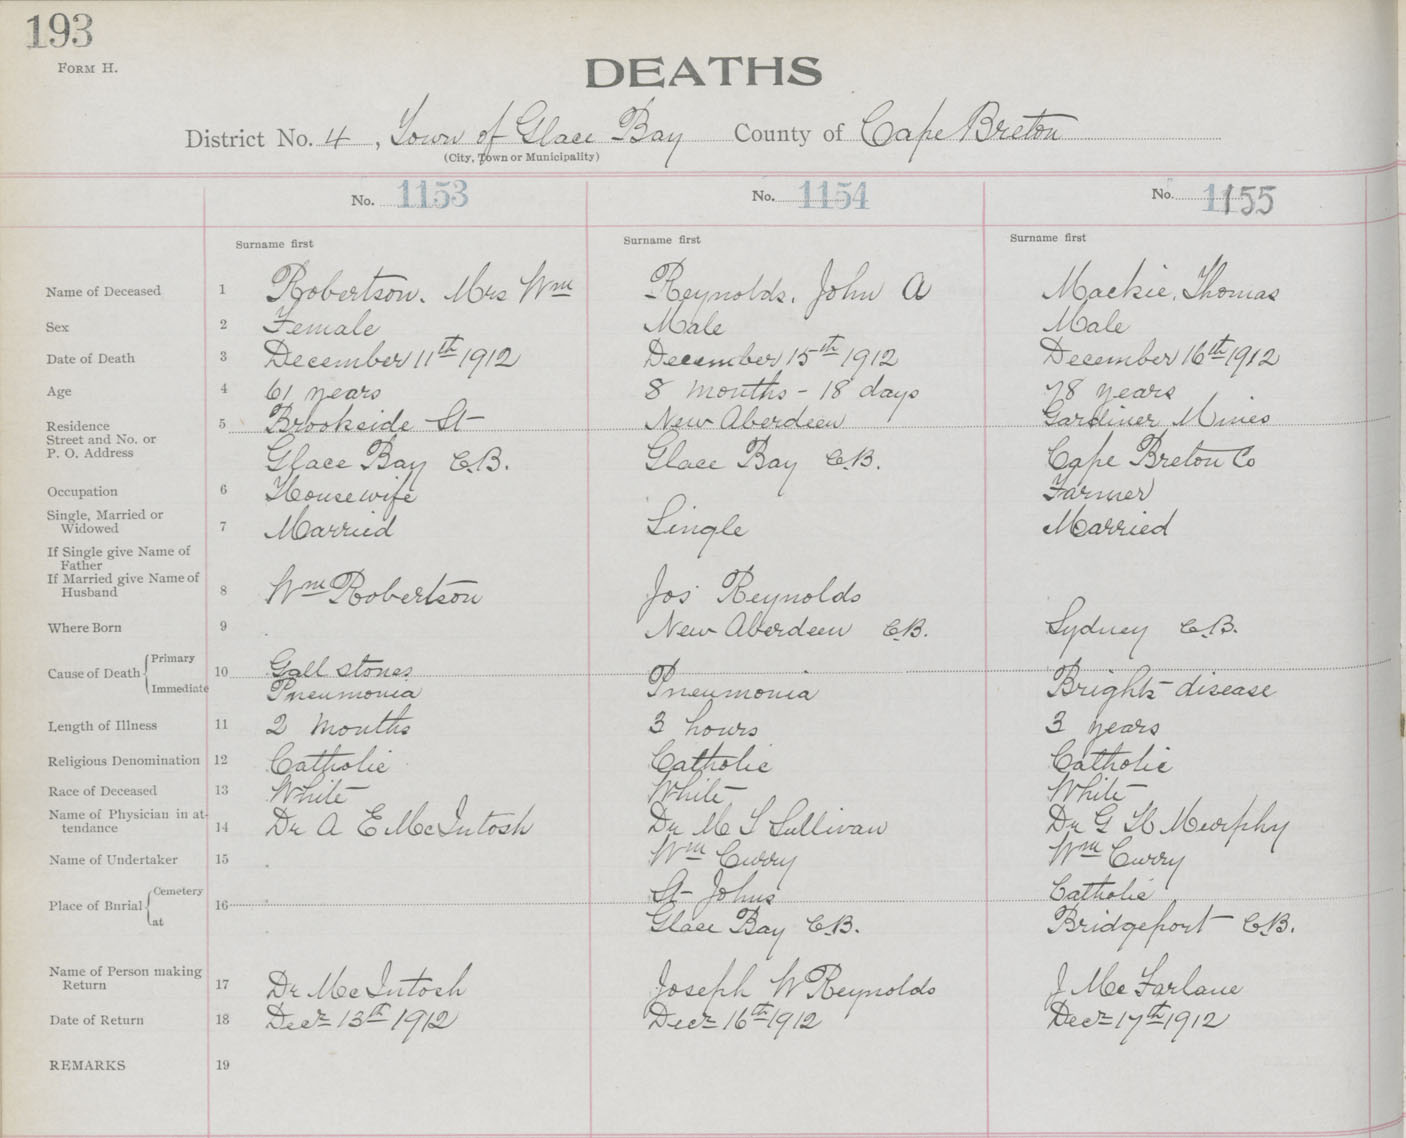 193
FORM H.
DEATHS
District No. 4, Town of Glace Bay County of Cape Breton
(City, Town or Municipality)
No. 1153 No. 1154 No. 1155
Surname first Surname first Surname first
Name of Deceased 1 Robertson. Mrs Wm Reynolds. John A Mackie, Thomas
Sex 2 Female Male Male
Date of Death 3 December 11th 1912 December 15th 1912 December 16th 1912
Age 4 61 years 8 months - 18 days 78 years
Residence Street and No. or P. O. Address 5 Brookside St New Aberdeen Gardiner Mines
Glace Bay C.B. Glace Bay C.B. Cape Breton Co
Occupation 6 Housewife Farmer
Single, Married or Widowed 7 Married Single Married
If Single give Name of Father
If Married give Name of Husband 8 Wm Robertson Jos Reynolds
Where Born 9 New Aberdeen C.B. Sydney C.B.
Cause of Death Primary 10 Gall stones
Immediate Pneumonia Pneumonia Brights disease
Length of Illness 11 2 months 3 hours 3 years
Religious Denomination 12 Catholic Catholic Catholic
Race of Deceased 13 White White White
Name of Physician in attendance 14 Dr A E McIntosh Dr M S Sullivan Dr G H Murphy
Name of Undertaker 15 Wm Curry Wm Curry
Place of Burial Cemetery 16 St Johns Catholic
at Glace Bay C.B. Bridgeport C.B.
Name of Person making Return 17 Dr McIntosh Joseph W Reynolds J McFarlane
Date of Return 18 Decr 13th 1912 Decr 16th 1912 Decr 17th 1912
REMARKS 19